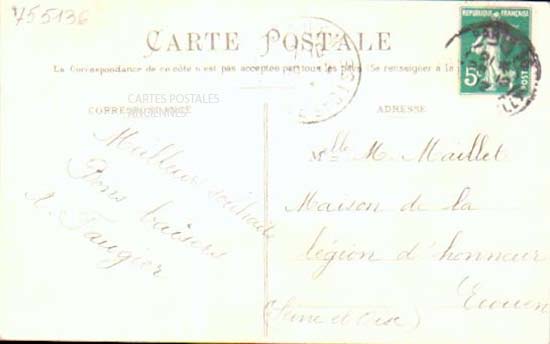 755136
CARTE POSTALE
La Correspondance de ce côté n'est pas acceptée par tous les pays (Se renseigner à la
RÉPUBLIQUE FRANÇAISE
5c
POSTES
CORRESPONDANCE
CARTES POSTALES
ANCIENNES
ADRESSE
Meilleurs souhaits
Bons baisers
A. Faugier
Mlle M. Maillet
Maison de la
légion d'honneur
Ecouen
(Seine et Oise)